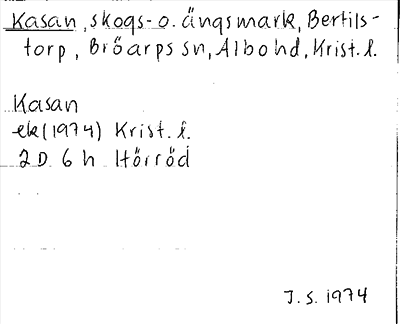 Kasan, skogs- o. ängsmark, Bertils-
torp, Bröarps sn, Albo hd, Krist. l.
Kasan
ek (1974) Krist. l.
2D 6h Hörröd
J. S. 1974